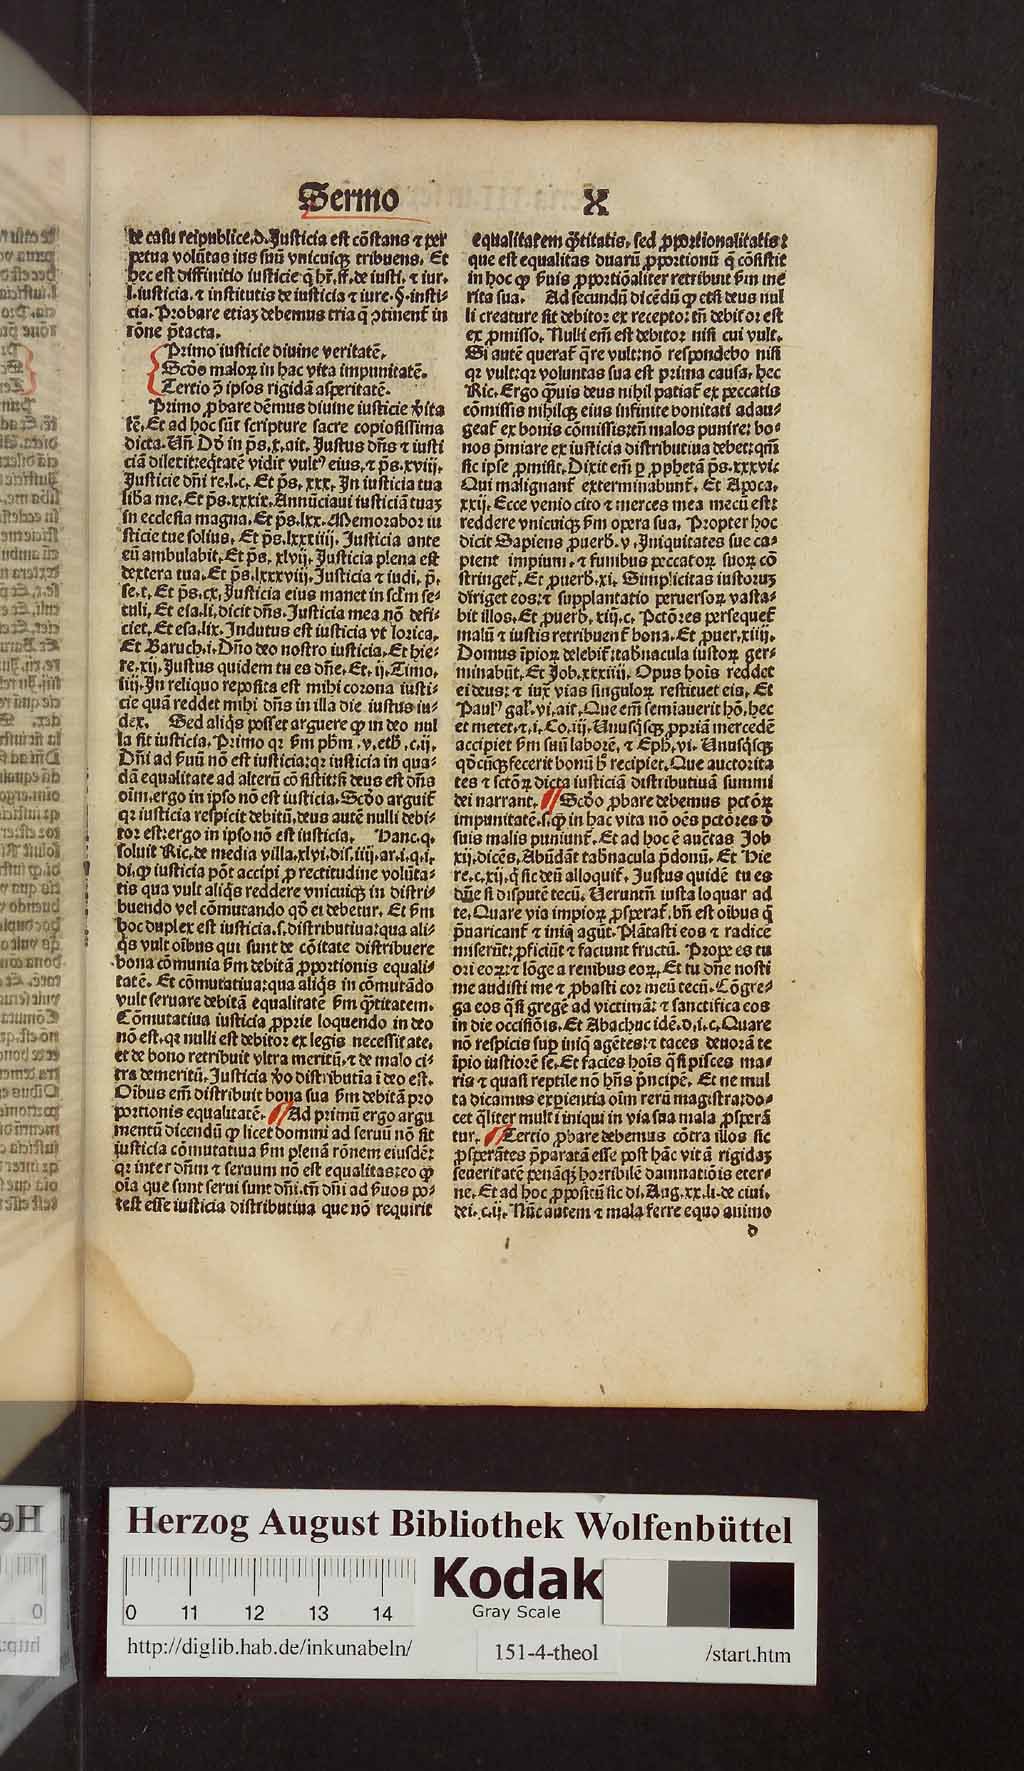 Sermo X
de casu reipublice.d. Justicia est cōstans ⁊ per
petua volūtas ius suū vnicuiqꝫ tribuens. Et
hec est diffinitio iusticie q̄ hr̄.ff.de iusti. ⁊ iur.
l.iusticia. ⁊ institutis de iusticia ⁊ iure.§.insti-
cia. Probare etiaꝫ debemus tria q̄ ꝯtinent̄ in
rōne p̄tacta.
Primo iusticie diuine veritatē.
Scḋo maloꝝ in hac vita impunitatē.
Tertio ꝯ̄ ipsos rigidā asperitatē.
Primo ꝓbare dēmus diuine iusticie v̄ita
tē. Et ad hoc sūt scripture sacre copiosissima
dicta. Vn̄ Dd̄ in p̄s.x.ait. Justus dn̄s ⁊ iusti
ciā dilexit:eq̄tatē vidit vultꝰ eius. ⁊ p̄s.xviij.
Justicie dn̄i re.l.c. Et p̄s. xxx. In iusticia tua
liƀa me. Et p̄s.xxxix. Annūciaui iusticiā tuaꝫ
in ecclesia magna. Et p̄s.lxx. Memorabor iu
sticie tue solius. Et p̄s.lxxxiiij. Justicia ante
eū ambulabit. Et p̄s. xlvij. Justicia plena est
dextera tua. Et p̄s.lxxxviij. Justicia ⁊ iudi. p̄.
se.t. Et p̄s.cx. Justicia eius manet in scl̄m se-
culi. Et esa.li. dicit dn̄s. Justicia mea nō defi-
ciet. Et esa.lix. Indutus est iusticia vt lorica.
Et Baruch.i. Dn̄o deo nostro iusticia. Et hie-
re.xij. Justus quidem tu es dn̄e. Et. ij. Timo.
iiij. In reliquo reposita est mihi corona iusti-
cie quā reddet mihi dn̄s in illa die iustus iu-
dex. Sed aliq̄s posset arguere ꝙ in deo nul
la sit iusticia. Primo qꝛ ẜm pħm .v. eth̄. c.ij.
Dn̄i ad ẜuū nō est iusticia:qꝛ iusticia in qua-
dā equalitate ad alterū cōsistit:ꝗ deus est dn̄s
oīm.ergo in ipso nō est iusticia. Scḋo arguit̄
qꝛ iusticia respicit debitū.deus autē nulli debi-
tor est:ergo in ipso nō est iusticia. Hanc.q.
soluit Ric.de media villa.xlvi.dis.iiij.ar.i.q.i.
di.ꝙ iusticia pōt accipi ꝓ rectitudine volūta-
tis qua vult aliq̄s reddere vnicuiqꝫ in distri-
buendo vel cōmutando qḋ ei debetur. Et ẜm
hoc duplex est iusticia.s.distributiua:qua ali-
q̄s vult oībus qui sunt de cōitate distribuere
bona cōmunia ẜm debitā ꝓportionis equali-
tatē. Et cōmutatiua:qua aliq̄s in cōmutādo
vult seruare debitā equalitatē ẜm q̄titatem.
Cōmutatiua iusticia ꝓprie loquendo in deo
nō est.qꝛ nulli est debitor ex legis necessitate.
et de bono retribuit vltra meritū.⁊ de malo ci-
tra demeritū. Justicia v̄o distributīa ī deo est.
Oībus em̄ distribuit bona sua ẜm debitā pro
portionis equalitatē. Ad primū ergo argu
mentū dicendū ꝙ licet domini ad seruū nō sit
iusticia cōmutatiua ẜm plenā rōnem eiusdē:
qꝛ inter dn̄m ⁊ seruum nō est equalitas:eo ꝙ
oīa que sunt serui sunt dn̄i.tn̄ dn̄i ad ẜuos po-
test esse iusticia distributiua que nō requirit
equalitatem q̄titatis. sed ꝓportionalitatis:
que est equalitas duarū ꝓportionū q̄ cōsistit
in hoc ꝙ ẜuis ꝓportiōaliter retribuit ẜm me
rita sua. Ad secundū dicēdū ꝙ etsi deus nul
li creature sit debitor ex receptoꝛ tn̄ debitor est
ex ꝓmisso. Nulli em̄ est debitor nisi cui vult.
Si autē querat̄ q̄re vult:nō respondebo nisi
qꝛ vult:qꝛ voluntas sua est prima causa. hec
Ric. Ergo q̄uis deus nihil patiat̄ ex peccatis
cōmissis nihilqꝫ eius infinite bonitati adau-
geat̄ ex bonis cōmissis:tn̄ malos punire: bo-
nos p̄miare ex iusticia distributiua debet:qm̄
sic ipse ꝓmisit. Dixit em̄ ꝑ ꝓphetā p̄s.xxxvi.
Qui malignant̄ exterminabunt̄. Et Apoca.
xxij. Ecce venio cito ⁊ merces mea mecū est:
reddere vnicuiqꝫ ẜm opera sua. Propter hoc
dicit Sapiens ꝓuerb̄. v. Iniquitates sue ca-
piunt impium. ⁊ funibus peccatoꝝ suoꝝ cō
stringet̄. Et ꝓuerb̄.xi. Simplicitas iustoruꝫ
diriget eos:⁊ supplantatio peruersoꝝ vasta-
bit illos. Et ꝓuerb̄. xiij.c. Pctōres persequet̄
malū ⁊ iustis retribuent̄ bona. Et ꝓuer.xiiij.
Domus īpioꝝ delebit̄:tab̄nacula iustoꝝ ger-
minabūt. Et Job.xxxiiij. Opus hoīs reddet
ei deus: ⁊ iux̄ vias singuloꝝ restituet eis. Et
Paulꝰ gal̄.vi.ait. Que em̄ semiauerit hō. hec
et metet.⁊.i.Co.iij. Vnusq̄sqꝫ ꝓpriā mercedē
accipiet ẜm suū laborē. ⁊ Eph̄.vi. Vnusq̄sqꝫ
qḋcūqꝫ fecerit bonū h̄ recipiet. Que auctorita
tes ⁊ sctōꝝ dicta iusticiā distributiuā summi
dei narrant. Scḋo ꝓbare debemus pctōꝝ
impunitatē.s.ꝙ in hac vita nō oēs pctōres ꝓ
suis malis puniunt̄. Et ad hoc ē auctas Job
xij.dicēs. Abūdāt tab̄nacula p̄donū. Et Hie
re.c.xij.q̄ sic deū alloquit̄. Justus quidē tu es
dn̄e si disputē tecū. Veruntn̄ iusta loquar ad
te. Quare via impioꝝ ꝓsperat̄. bn̄ est oībus q̄
p̄uaricant̄ ⁊ iniq̄ agūt. Plātasti eos ⁊ radicē
miserūt:ꝓficiūt ⁊ faciunt fructū. Prope es tu
ori eoꝝ:⁊ lōge a renibus eoꝝ. Et tu dn̄e nosti
me audisti me ⁊ ꝓbasti cor meū tecū. Cōgre-
ga eos q̄si gregē ad victimā: ⁊ sanctifica eos
in die occisiōis. Et Abachuc idē.d.i.c. Quare
nō respicis suꝑ iniq̄ agētes:⁊ taces deuorāte
īpio iustiorē se. Et facies hoīs q̄si pisces ma-
ris ⁊ quasi reptile nō hn̄s p̄ncipē. Et ne mul
ta dicamus exꝑientia oīm rerū magistra:do-
cet q̄liter multi iniqui in via sua mala ꝓsperā
tur. Tertio ꝓbare debemus cōtra illos sic
ꝓsperātes p̄paratā esse post hāc vitā rigidaꝫ
seueritatē penāqꝫ horribilē damnatiōis eter-
ne. Et ad hoc ꝓpositū sic di. Aug.xx.li.de ciui.
dei.c.ij. Nūc autem ⁊ mala ferre equo animo
d
Herzog August Bibliothek Wolfenbüttel
Kodak
Gray Scale
0 11 12 13 14
http://diglib.hab.de/inkunabeln/ 151-4-theol /start.htm